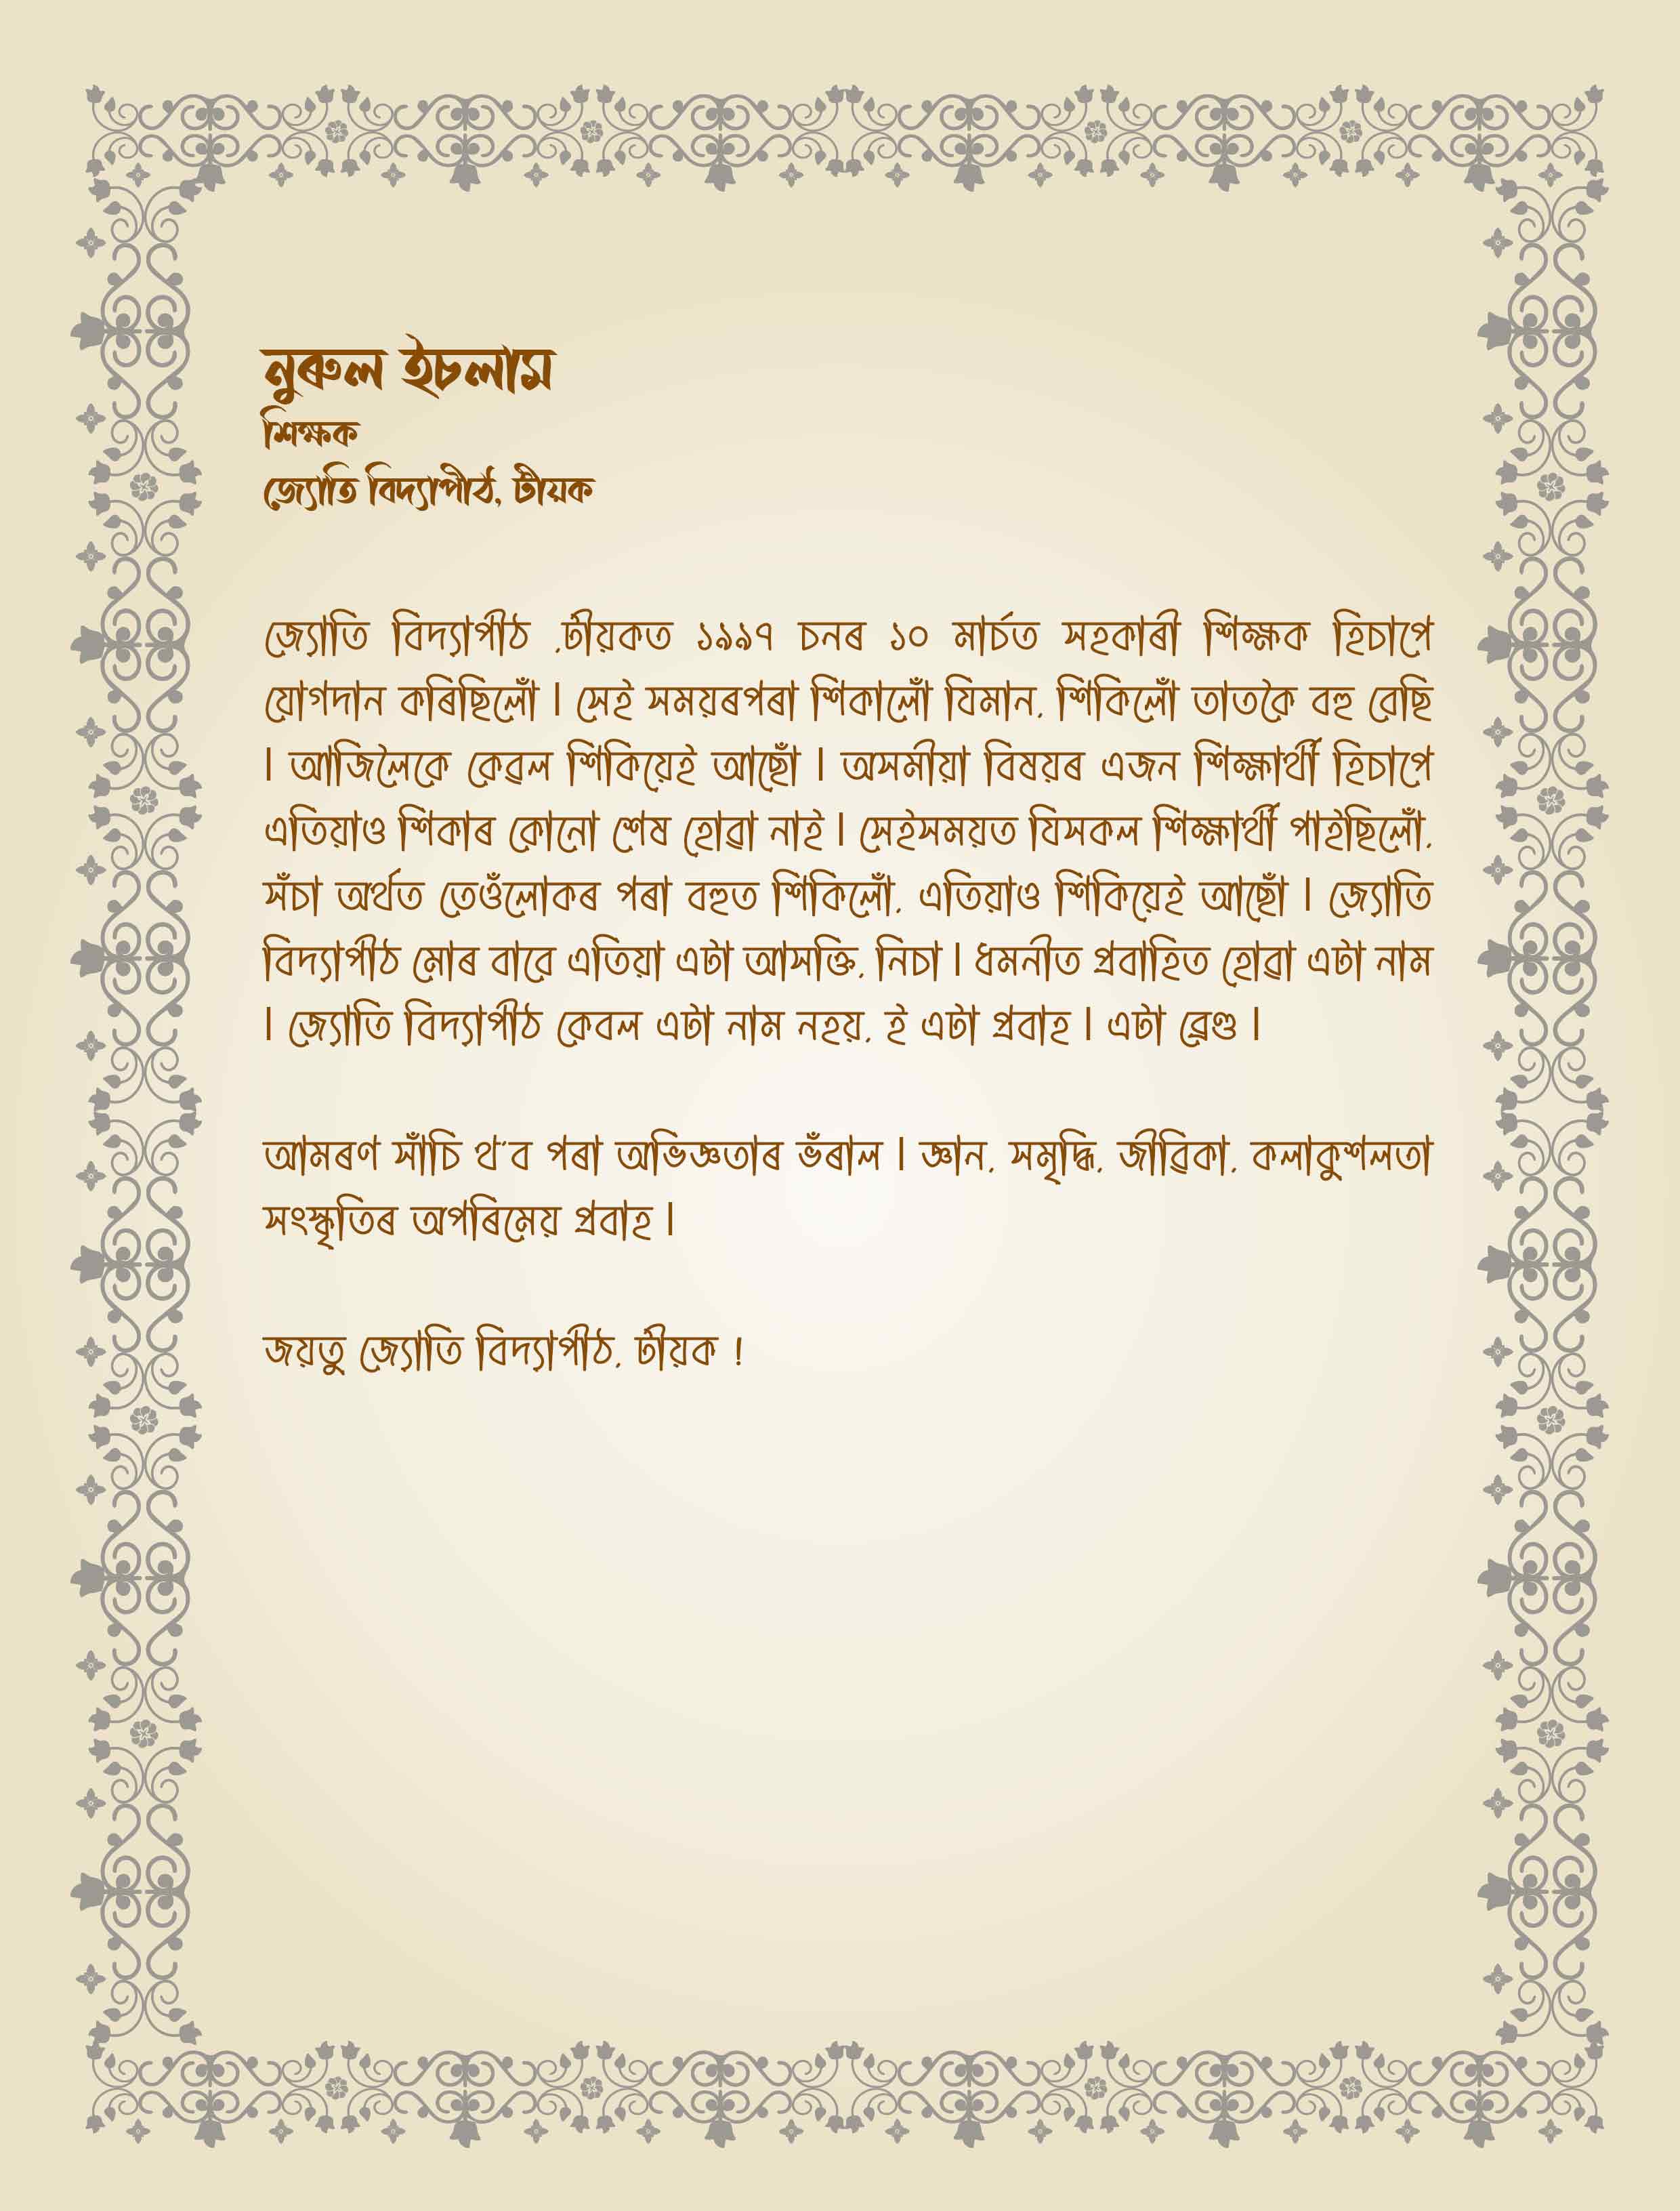 নুৰুল ইচলাম
শিক্ষক
জ্যোতি বিদ্যাপীঠ, টীয়ক
জ্যোতি বিদ্যাপীঠ ,টীয়কত ১৯৯৭ চনৰ ১০ মাৰ্চত সহকাৰী শিক্ষক হিচাপে
যোগদান কৰিছিলোঁ । সেই সময়ৰপৰা শিকালোঁ যিমান, শিকিলোঁ তাতকৈ বহু বেছি
। আজিলৈকে কেৱল শিকিয়েই আছোঁ । অসমীয়া বিষয়ৰ এজন শিক্ষাৰ্থী হিচাপে
এতিয়াও শিকাৰ কোনো শেষ হোৱা নাই । সেইসময়ত যিসকল শিক্ষাৰ্থী পাইছিলোঁ,
সঁচা অৰ্থত তেওঁলোকৰ পৰা বহুত শিকিলোঁ, এতিয়াও শিকিয়েই আছোঁ । জ্যোতি
বিদ্যাপীঠ মোৰ বাবে এতিয়া এটা আসক্তি, নিচা । ধমনীত প্ৰবাহিত হোৱা এটা নাম
। জ্যোতি বিদ্যাপীঠ কেবল এটা নাম নহয়, ই এটা প্ৰবাহ । এটা ব্ৰেণ্ড ।
আমৰণ সাঁচি থ'ব পৰা অভিজ্ঞতাৰ ভঁৰাল । জ্ঞান, সমৃদ্ধি, জীৱিকা, কলাকুশলতা
সংস্কৃতিৰ অপৰিমেয় প্ৰবাহ ।
জয়তু জ্যোতি বিদ্যাপীঠ, টীয়ক !